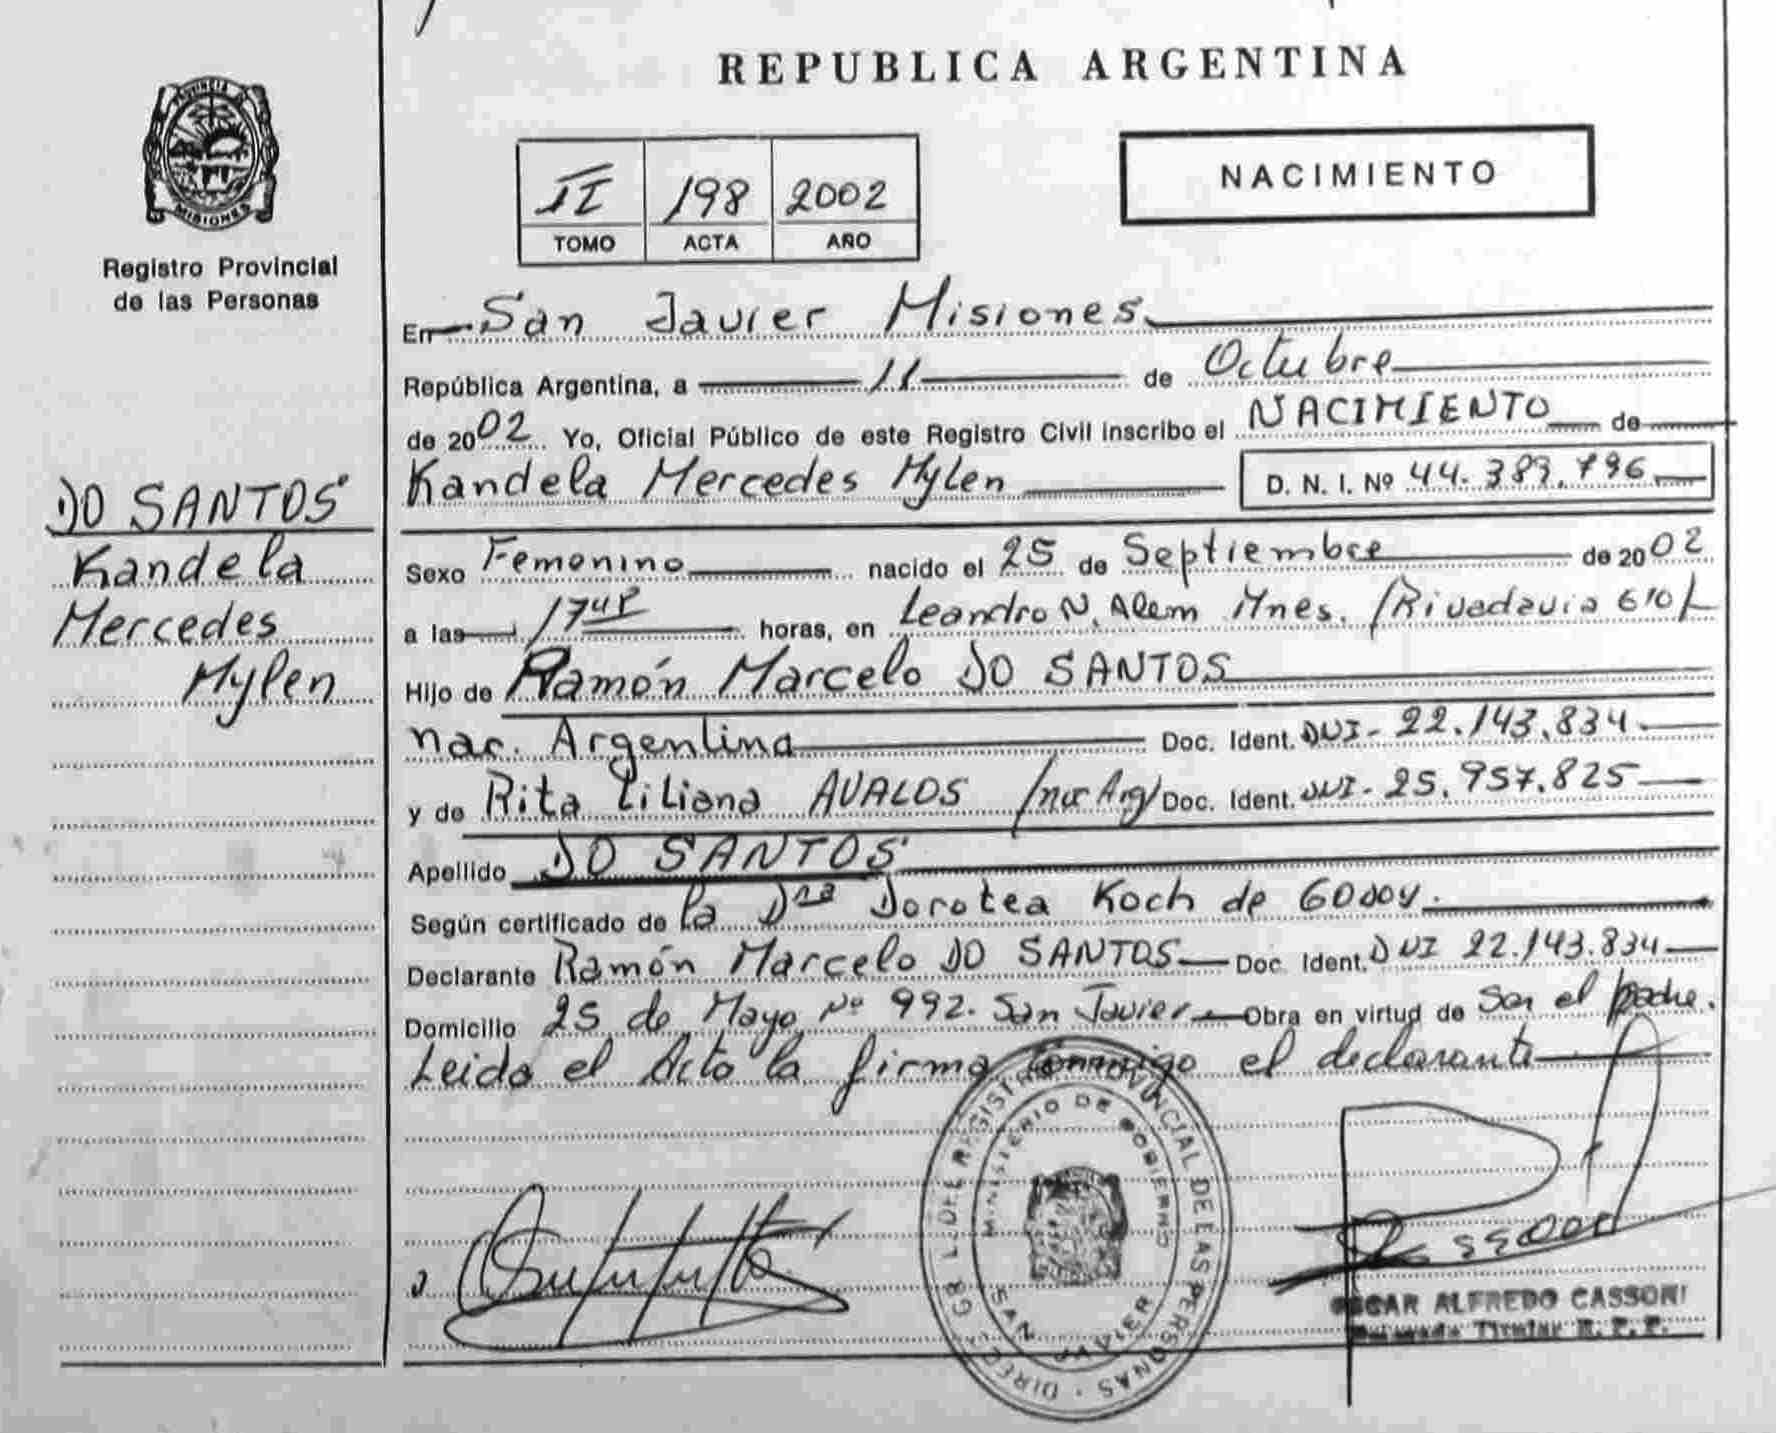 REPUBLICA ARGENTINA
PROVINCIA DE
MISIONES
Registro Provincial
de las Personas
II 198 2002
TOMO ACTA AÑO
NACIMIENTO
En San Javier Misiones
República Argentina, a 11 de Octubre
de 2002 Yo, Oficial Público de este Registro Civil inscribo el NACIMIENTO de
Kandela Mercedes Mylen D. N. I. Nº 44.389.796
DO SANTOS
Kandela
Mercedes
Mylen
Sexo Femenino nacido el 25 de Septiembre de 2002
a las 17 horas, en Leandro N. Alem Mnes. /Rivadavia 610/
Hijo de Ramón Marcelo DO SANTOS
nac. Argentina Doc. Ident. DNI- 22.143.834
y de Rita Liliana AVALOS /nac Arg/ Doc. Ident. DNI- 25.957.825
Apellido DO SANTOS
Según certificado de la Dra Dorotea Koch de GODOY.
Declarante Ramón Marcelo DO SANTOS Doc. Ident. DNI 22.143.834
Domicilio 25 de Mayo Nº 992. San Javier Obra en virtud de Ser el padre.
Leida el Acta la firma conmigo el declarante
MINISTERIO DE GOBIERNO
SAN JAVIER
PROVINCIAL DE LAS PERSONAS
OSCAR ALFREDO CASSONI
Titular R. P. P.